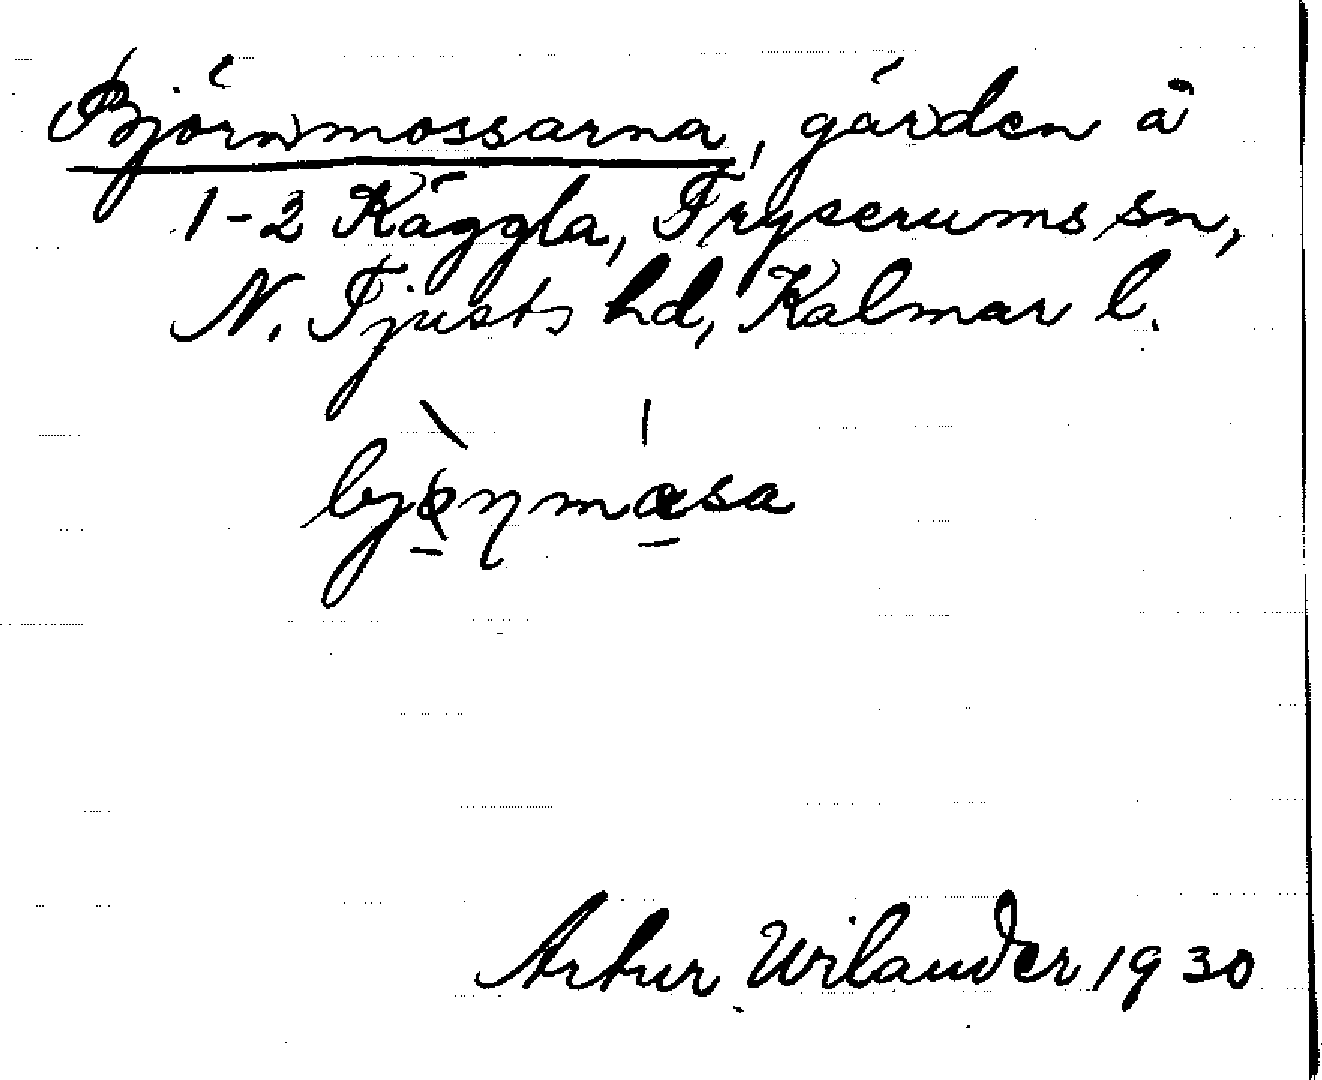 Björnmossarna, gärden å
1-2 Käggla, Tryserums sn,
N. Tjusts hd, Kalmar l.
Artur Wilander 1930